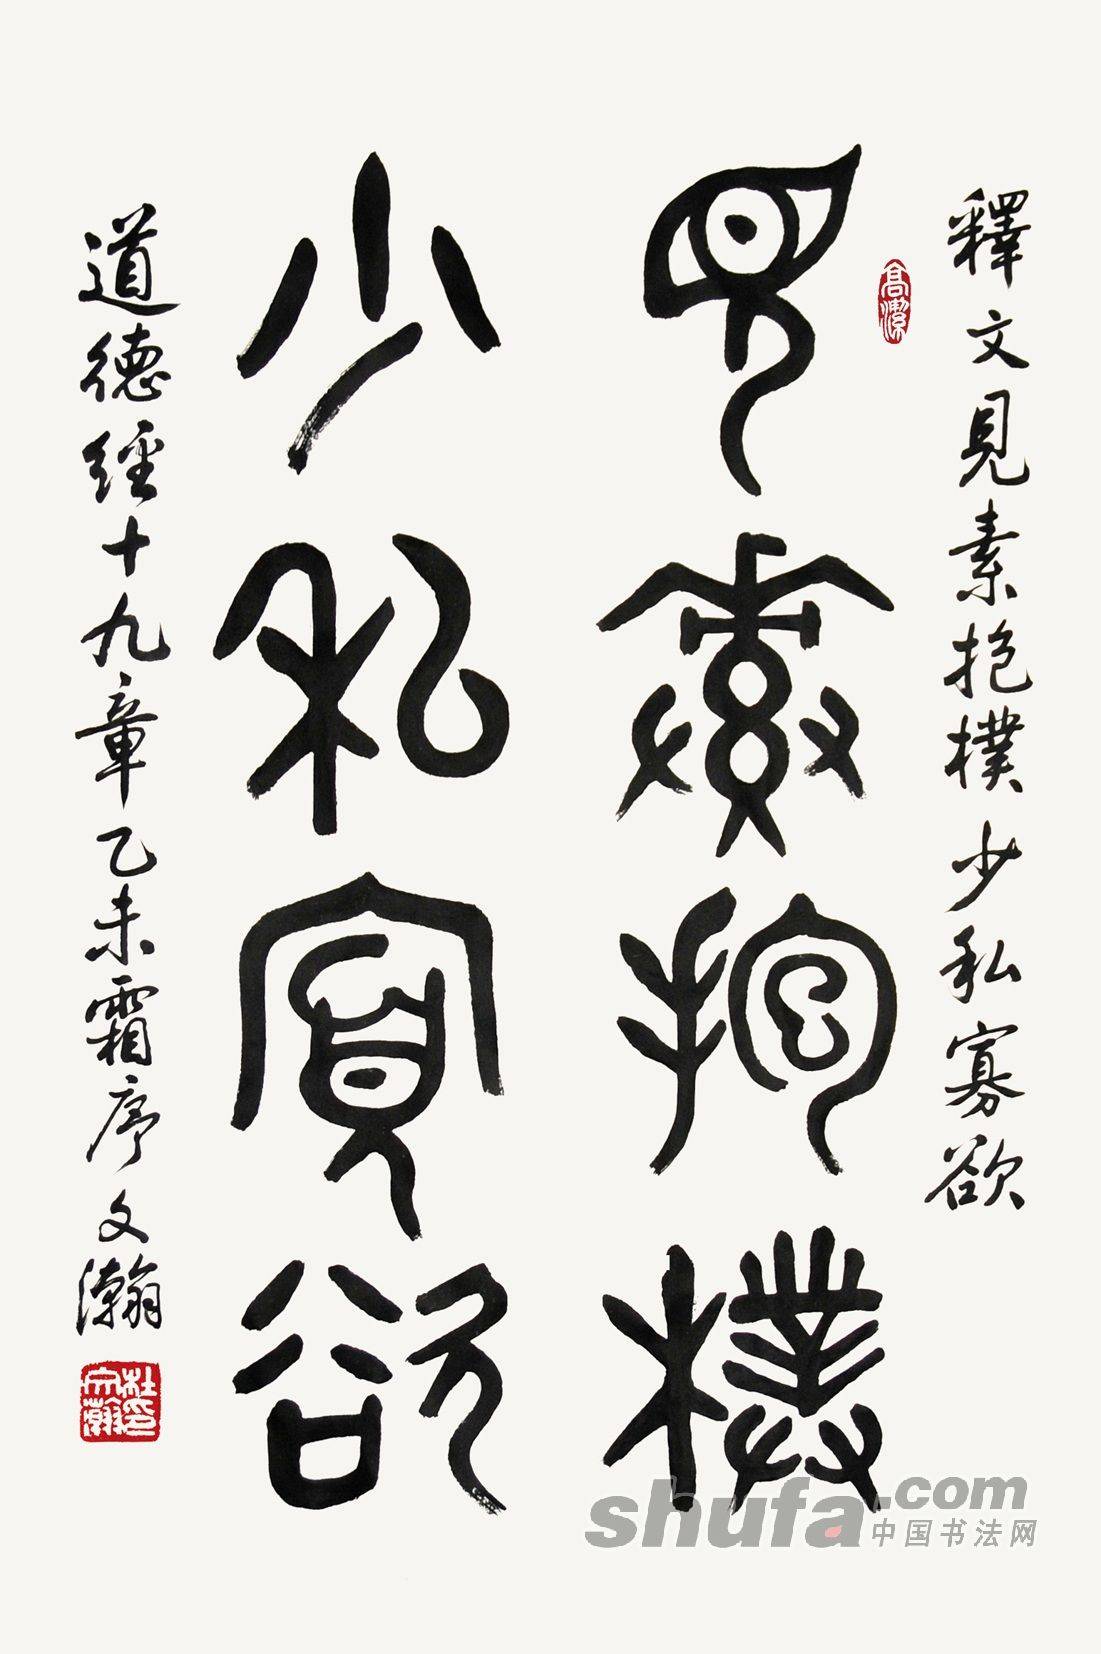 釋文見素抱樸少私寡欲
高潔
見素抱樸
少私寡欲
道德經十九章乙未霜序文瀚
杜文瀚印
shufa.com
中国书法网